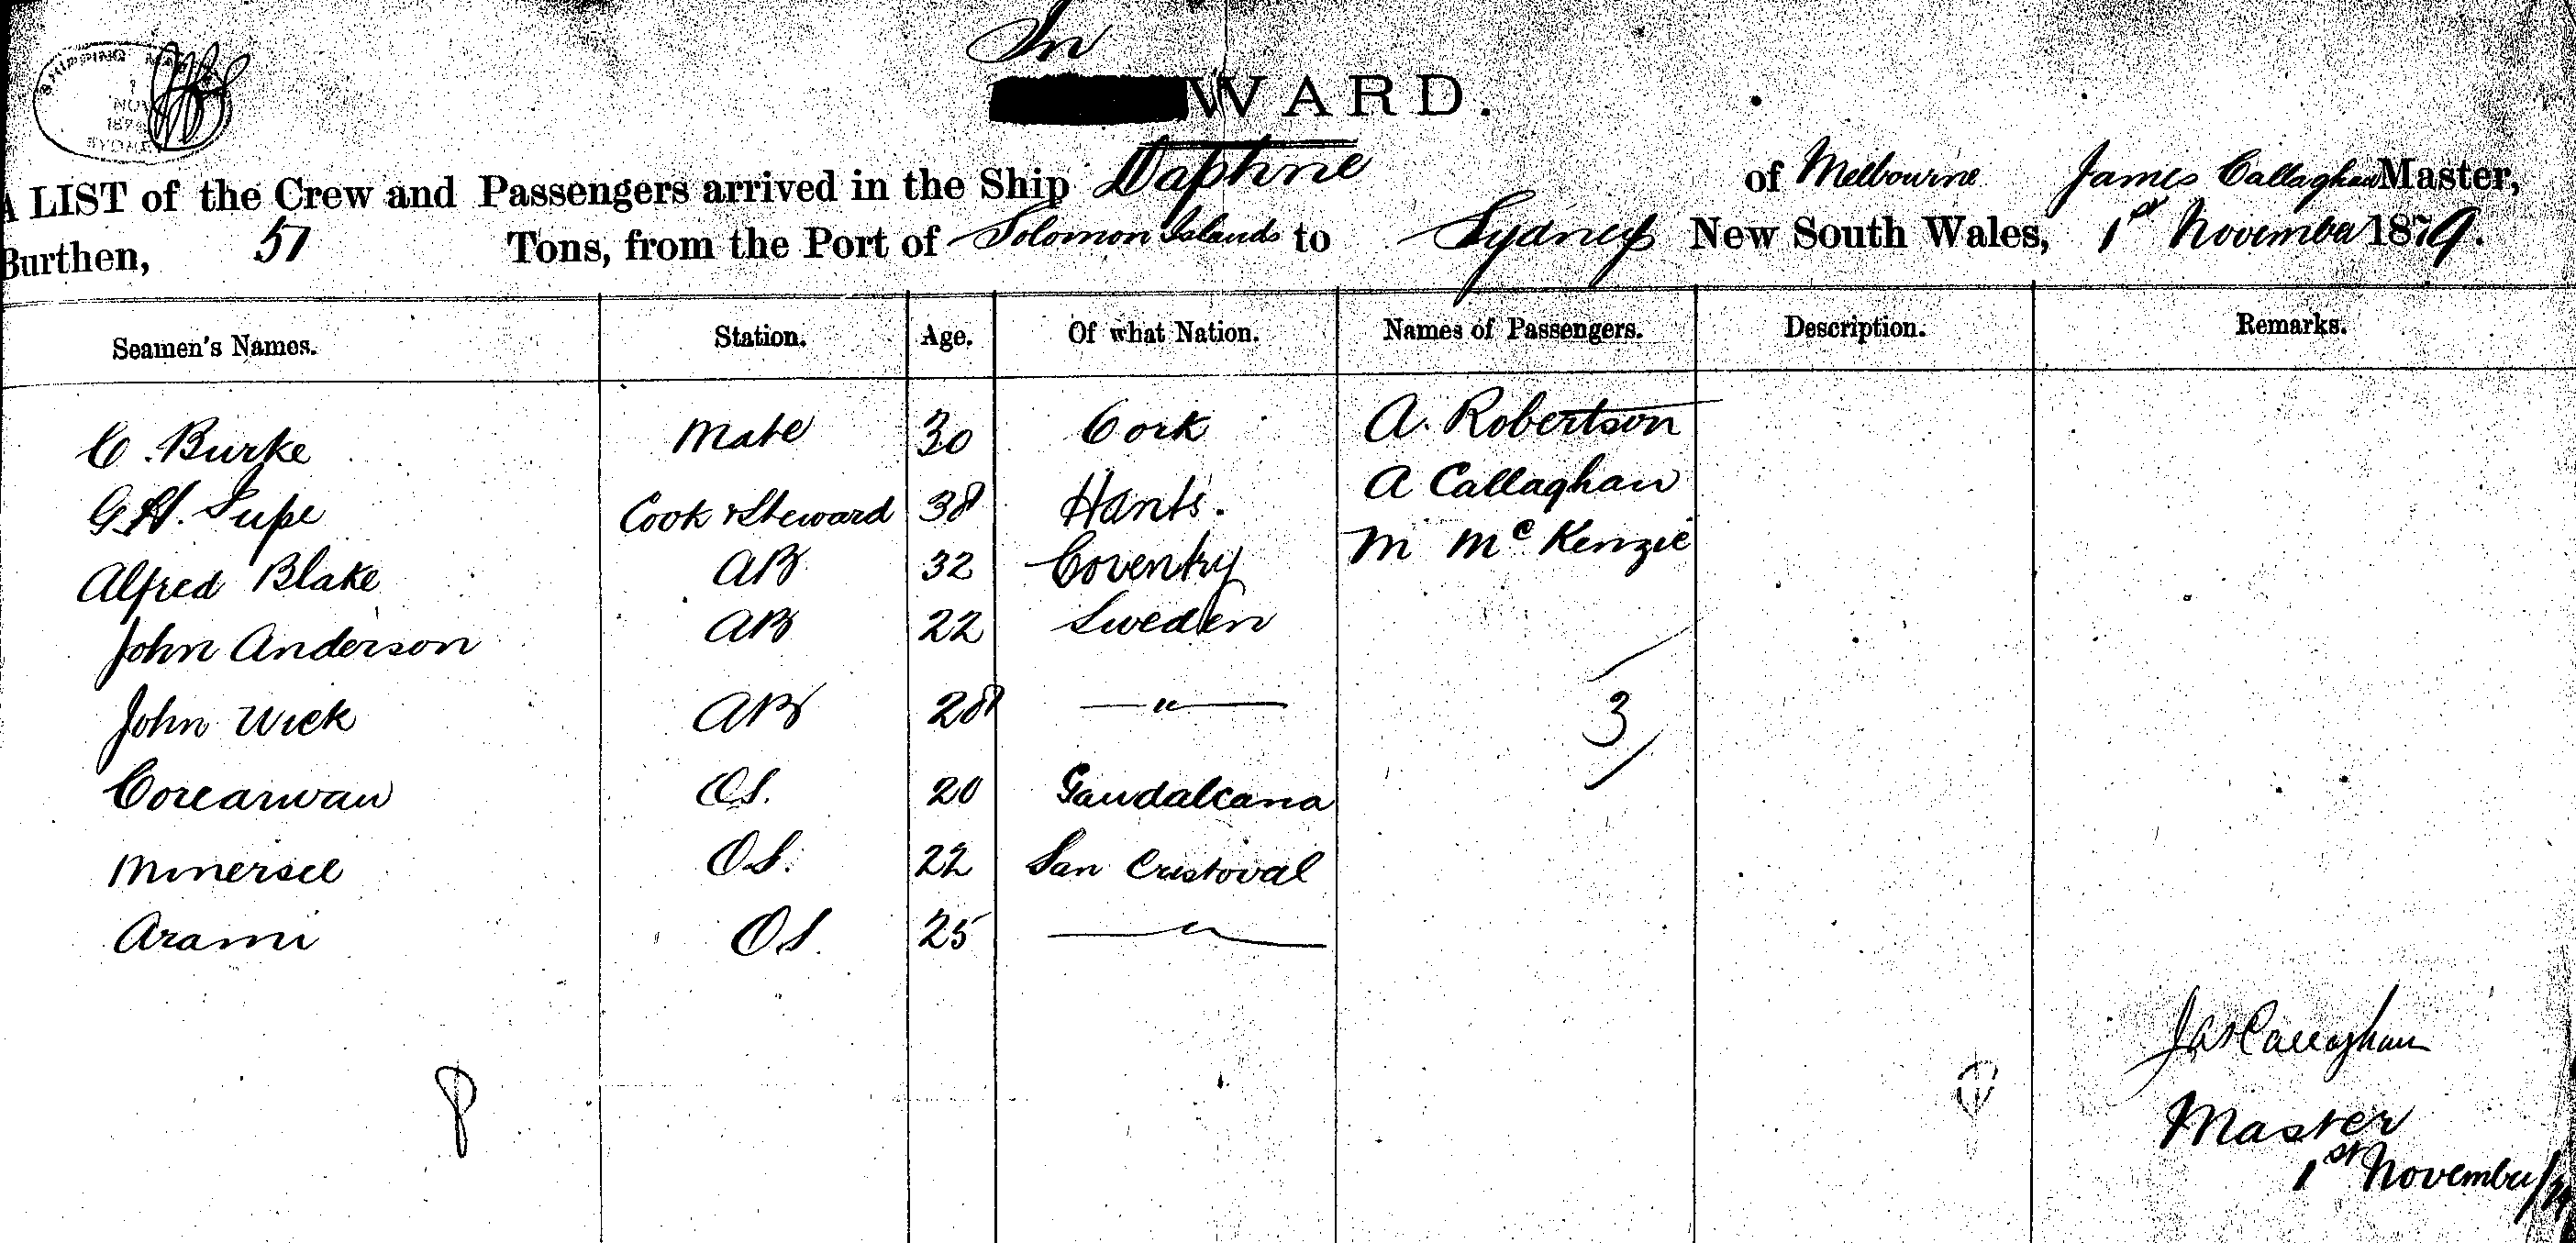 SHIPPING
NOV
SYDNEY
In
WARD.
A LIST of the Crew and Passengers arrived in the Ship Daphne of Melbourne James Callaghan Master,
Burthen, 51 Tons, from the Port of Solomon Islands to Sydney New South Wales, 1st November 1879.
Seamen's Names. Station. Age. Of what Nation. Names of Passengers. Description. Remarks.
C. Burke Mate 30 Cork A. Robertson
G.H. Supe Cook & Steward 38 Hants. A Callaghan
Alfred Blake AB 32 Coventry M McKenzie
John Anderson AB 22 Sweden
John Wick AB 28 — " — 3
Corearwan O.S. 20 Gaudalcana
Minersel O.S. 22 San Cristoval
Arami O.S. 25 — " —
8
Jas Callaghan
Master
1st November/79